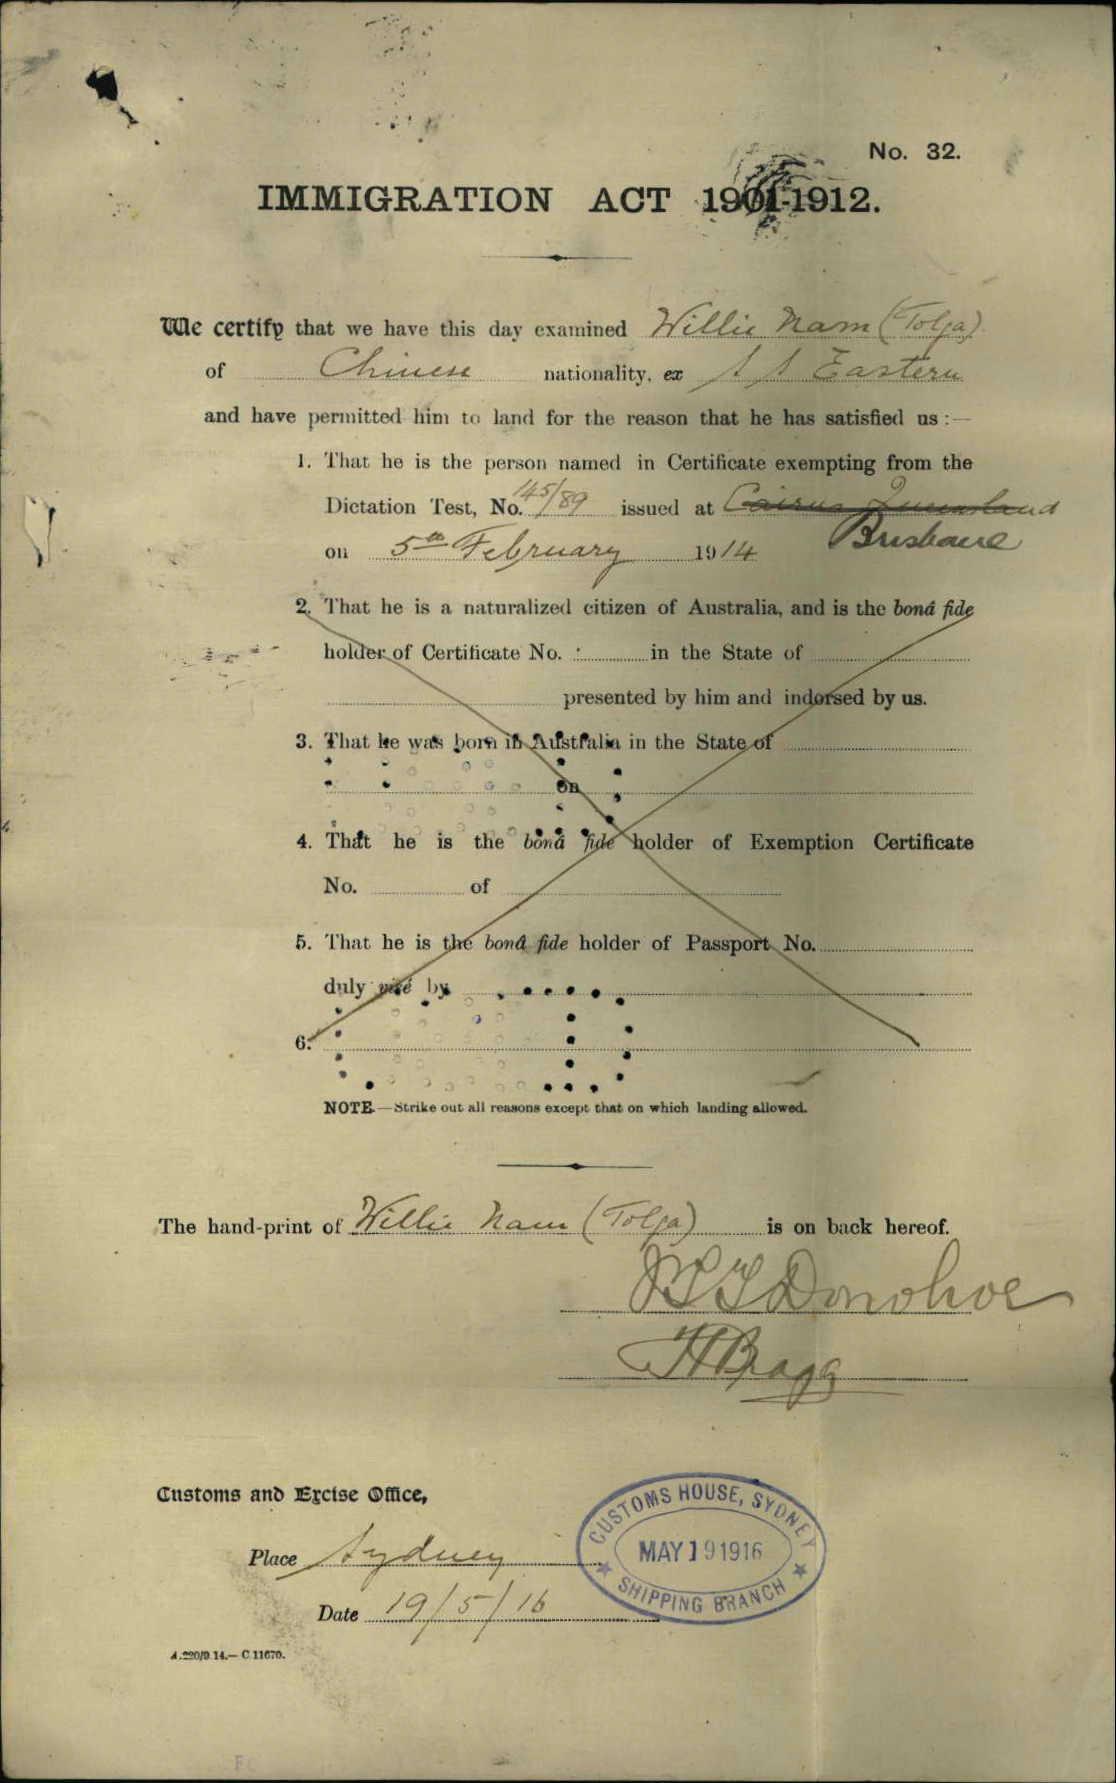 No. 32.
IMMIGRATION ACT 1901-1912.
We certify that we have this day examined Willie Nam (Tolga)
of Chinese nationality, ex S S Eastern
and have permitted him to land for the reason that he has satisfied us :—
1. That he is the person named in Certificate exempting from the
Dictation Test, No. 145/89 issued at Cairns Queensland
Brisbane
on 5th February 1914
2. That he is a naturalized citizen of Australia, and is the boná fide
holder of Certificate No. in the State of
presented by him and indorsed by us.
3. That he was born in Australia in the State of
on
4. That he is the boná fide holder of Exemption Certificate
No. of
5. That he is the boná fide holder of Passport No.
duly visé by
6.
NOTE.—Strike out all reasons except that on which landing allowed.
The hand-print of Willie Nam (Tolga) is on back hereof.
Donohoe
Bragg
Customs and Excise Office,
Place Sydney
Date 19/5/16
CUSTOMS HOUSE, SYDNEY
MAY 19 1916
SHIPPING BRANCH
A.220/9.14.—C.11670.